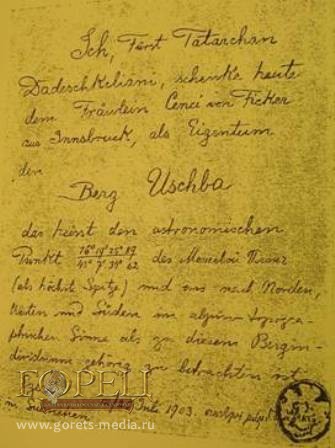 Ich, Fürst Tatarchan
Dadeschkeliani, schenke heute
dem Fräulein Cenci von Ficker
aus Innsbruck, als Eigentum
den
Berg Uschba
das heisst den astronomischen
Punkt des
(als höchste Spitze) und uns nach Norden,
Westen und Süden im alpin-topogra-
phischen Sinne als zu diesem Bergin-
dividuum gehörig zu betrachten ist
ГОРЕЦ
Juli 1903.
www.gorets-media.ru